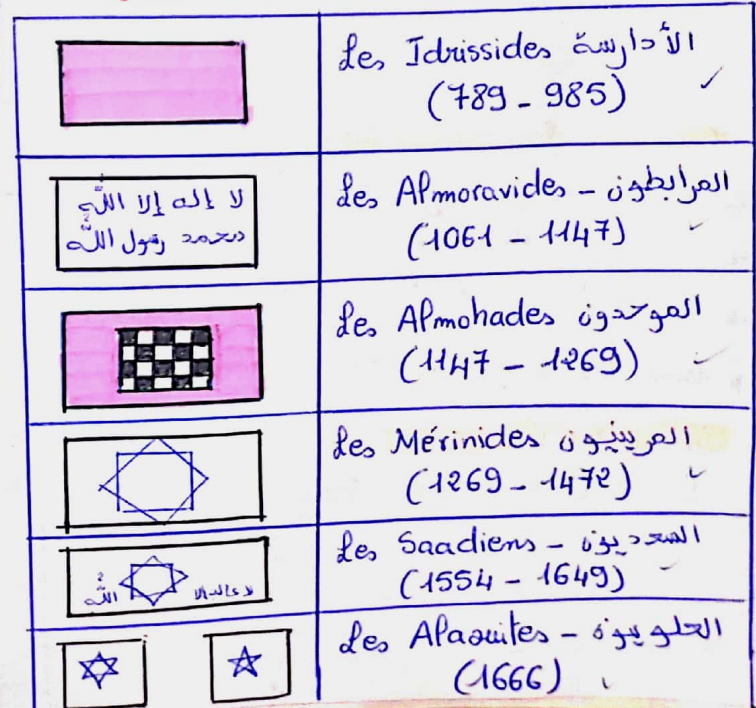 Les Idrissides الأدارسة
(789 - 985)
لا إله إلا الله
محمد رسول الله
Les Almoravides - المرابطون
(1061 - 1147)
Les Almohades الموحدون
(1147 - 1269)
Les Mérinides المرينيون
(1269 - 1472)
لا اله الا الله
Les Saadiens - السعديون
(1554 - 1649)
Les Alaouites - العلويون
(1666)